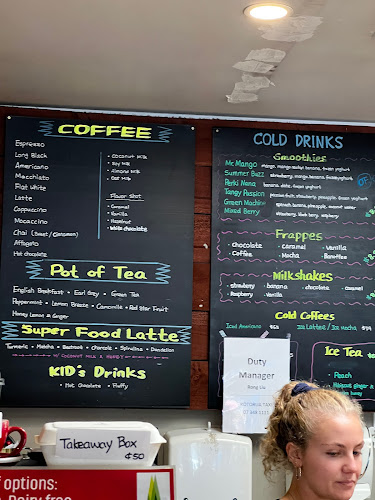 COFFEE
Espresso
Long Black
Americano
Macchiato
Flat White
Latte
Cappuccino
Mocaccino
Chai (Sweet/Cinnamon)
Affogato
Hot chocolate
• Coconut Milk
• Soy Milk
• Almond Milk
• Oat Milk
Flavor Shot
• Caramel
• Vanilla
• Hazelnut
• White chocolate
Pot of Tea
English Breakfast • Earl Grey • Green Tea
Peppermint • Lemon Breeze • Camomile • Red Star Fruit
Honey Lemon & Ginger
Super Food Latte
Turmeric • Matcha • Beetroot • Charcole • Spirulina • Dandelion
W/ COCONUT MILK & HONEY
KID's Drinks
• Hot Chocolate • Fluffy
COLD DRINKS
Smoothies
Mc Mango
Summer Buzz
Perki Nana
Tangy Passion
Green Machine
Mixed Berry
strawberry, mango, banana,
banana, dates,
strawberry, black berry, raspberry
Frappes
• Chocolate • Caramel • Vanilla
• Coffee • Mocha
Milkshakes
• Strawberry • banana • chocolate • caramel
• Raspberry • Vanilla
Cold Coffees
Iced Americano
Ice Tea
• Peach
Duty
Manager
Takeaway Box
¢50
options: